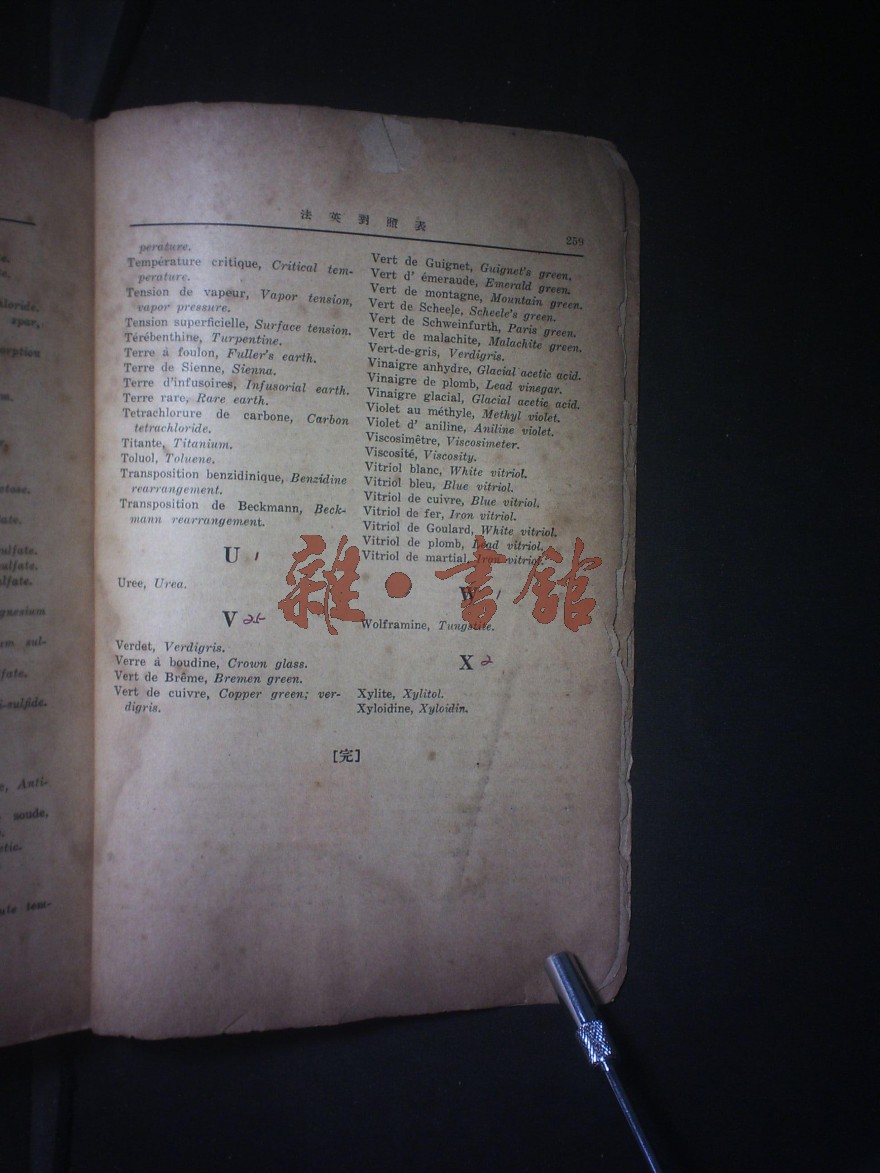 法英對照表
259
perature.
Température critique, Critical tem-
perature.
Tension de vapeur, Vapor tension,
vapor pressure.
Tension superficielle, Surface tension.
Térébenthine, Turpentine.
Terre á foulon, Fuller's earth.
Terre de Sienne, Sienna.
Terre d'infusoires, Infusorial earth.
Terre rare, Rare earth.
Tetrachlorure de carbone, Carbon
tetrachloride.
Titante, Titanium.
Toluol, Toluene.
Transposition benzidinique, Benzidine
rearrangement.
Transposition de Beckmann, Beck-
mann rearrangement.
U 1
Uree, Urea.
V 25
Verdet, Verdigris.
Verre á boudine, Crown glass.
Vert de Brême, Bremen green.
Vert de cuivre, Copper green; ver-
digris.
Vert de Guignet, Guignet's green.
Vert d' émeraude, Emerald green.
Vert de montagne, Mountain green.
Vert de Scheele, Scheele's green.
Vert de Schweinfurth, Paris green.
Vert de malachite, Malachite green.
Vert-de-gris, Verdigris.
Vinaigre anhydre, Glacial acetic acid.
Vinaigre de plomb, Lead vinegar.
Vinaigre glacial, Glacial acetic acid.
Violet au méthyle, Methyl violet.
Violet d' aniline, Aniline violet.
Viscosimêtre, Viscosimeter.
Viscosité, Viscosity.
Vitriol blanc, White vitriol.
Vitriol bleu, Blue vitriol.
Vitriol de cuivre, Blue vitriol.
Vitriol de fer, Iron vitriol.
Vitriol de Goulard, White vitriol.
Vitriol de plomb, Lead vitriol.
Vitriol de martial, Iron vitriol.
W 1
Wolframine, Tungstite.
X 2
Xylite, Xylitol.
Xyloidine, Xyloidin.
[完]
雜·書館